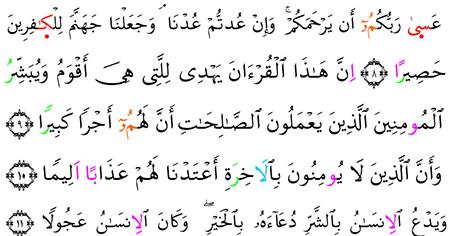 عَسٜىٰ رَبُّكُمُۥٓ أَن يَرْحَمَكُمْۚ وَإِنْ عُدتُّمْ عُدْنَاۘ وَجَعَلْنَا جَهَنَّمَ لِلْكٜـٰفِرِينَ
حَصِيرًا ﴿٨﴾ اِنَّ هَـٰذَا اَلْقُرْءَانَ يَهْدِى لِلَّتِى هِىَ أَقْوَمُ وَيُبَشِّرُ
اَلْمُومِنِينَ اَلَّذِينَ يَعْمَلُونَ اَلصَّـٰلِحَـٰتِ أَنَّ لَهُمُۥٓ أَجْرًا كَبِيرًا ﴿٩﴾
وَأَنَّ اَلَّذِينَ لَا يُومِنُونَ بِالَاخِرَةِ أَعْتَدْنَا لَهُمْ عَذَابًا اَلِيمًا ﴿١٠﴾
وَيَدْعُ اُلِانسَـٰنُ بِالشَّرِّ دُعَآءَهُۥ بِالْخَيْرِۖ وَكَانَ اَلِانسَـٰنُ عَجُولًا ﴿١١﴾